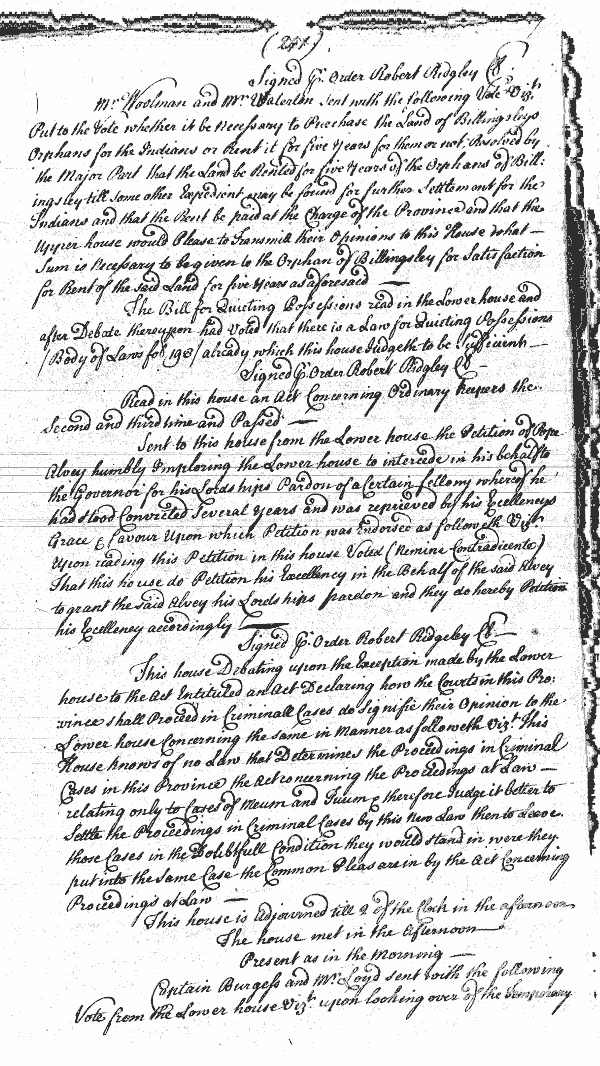 (241)
Signed p. Order Robert Ridgley Cl.
Mr. Woolman and Mr. Waterlin sent with the following Vote Vizt.
Put to the Vote whether it be necessary to Purchase the Land of Billingsleys
Orphans for the Indians or Rent it for five Years for them or not Resolved by
the Major Part that the Land be Rented for five Years of the Orphans of Bill:
ingsley till some other Expedient may be found for further Settlement for the
Indians and that the Rent be paid at the Charge of the Province and that the
Upper house would Please to Transmitt their Opinions to this House what
Sum is necessary to be given to the Orphan of Billingsley for Satisfaction
for Rent of the said Land for five Years as aforesaid —
The Bill for Quieting Possessions read in the Lower house and
after Debate thereupon had Voted that there is a Law for Quieting Possessions
/Body of Laws fol. 198/ already which this house Judgeth to be sufficient —
Signed p. Order Robert Ridgley Cl. —
Read in this house an Act Concerning Ordinary keepers the
Second and third time and Passed —
Sent to this house from the Lower house the Petition of Pope
Alvey humbly Imploring the Lower house to intercede in his behalf to
the Governor for his Lordships Pardon of a Certain fellony whereof he
had stood Convicted Several Years and was reprieved by his Excellencys
Grace & favour Upon which Petition was Endorsed as followeth Vizt.
Upon reading this Petition in this house Voted (Nemine Contradicente)
That this house do Petition his Excellency in the Behalf of the said Alvey
to grant the said Alvey his Lordships pardon and they do hereby Petition
his Excellency accordingly —
Signed p. Order Robert Ridgeley Cl. —
This house Debating upon the Exception made by the Lower
house to the Act Entituled an Act Declaring how the Courts in this Pro:
vince shall Proceed in Criminall Cases do Signifie their Opinion to the
Lower house Concerning the same in Manner as followeth Vizt. This
House knows of no Law that Determines the Proceedings in Criminal
Cases in this Province the Act concerning the Proceedings at Law —
relating only to Cases of Meum and Tuum & therefore Judge it better to
Settle the Proceedings in Criminal Cases by this New Law then to Leave
those Cases in the Doubtfull Condition they would stand in were they
put into the same Case the Common Pleas are in by the Act Concerning
Proceedings at Law —
This house is Adjourned till 2 of the Clock in the afternoon
The house met in the Afternoon —
Present as in the Morning —
Captain Burgess and Mr. Loyd sent with the following
Vote from the Lower house Vizt. upon looking over of the Temporary